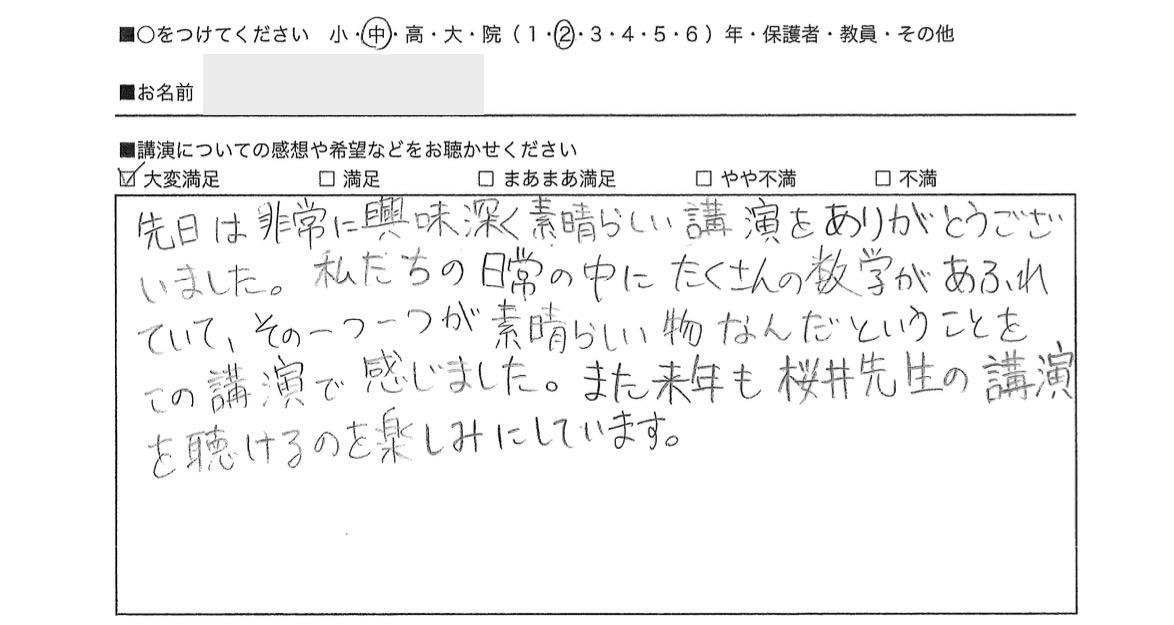 ■○をつけてください 小・中・高・大・院（1・2・3・4・5・6）年・保護者・教員・その他
■お名前
■講演についての感想や希望などをお聴かせください
☑ 大変満足 □ 満足 □ まあまあ満足 □ やや不満 □ 不満
先日は非常に興味深く素晴らしい講演をありがとうござ
いました。私たちの日常の中にたくさんの数学があふれ
ていて、その一つ一つが素晴らしい物なんだということを
この講演で感じました。また来年も桜井先生の講演
を聴けるのを楽しみにしています。